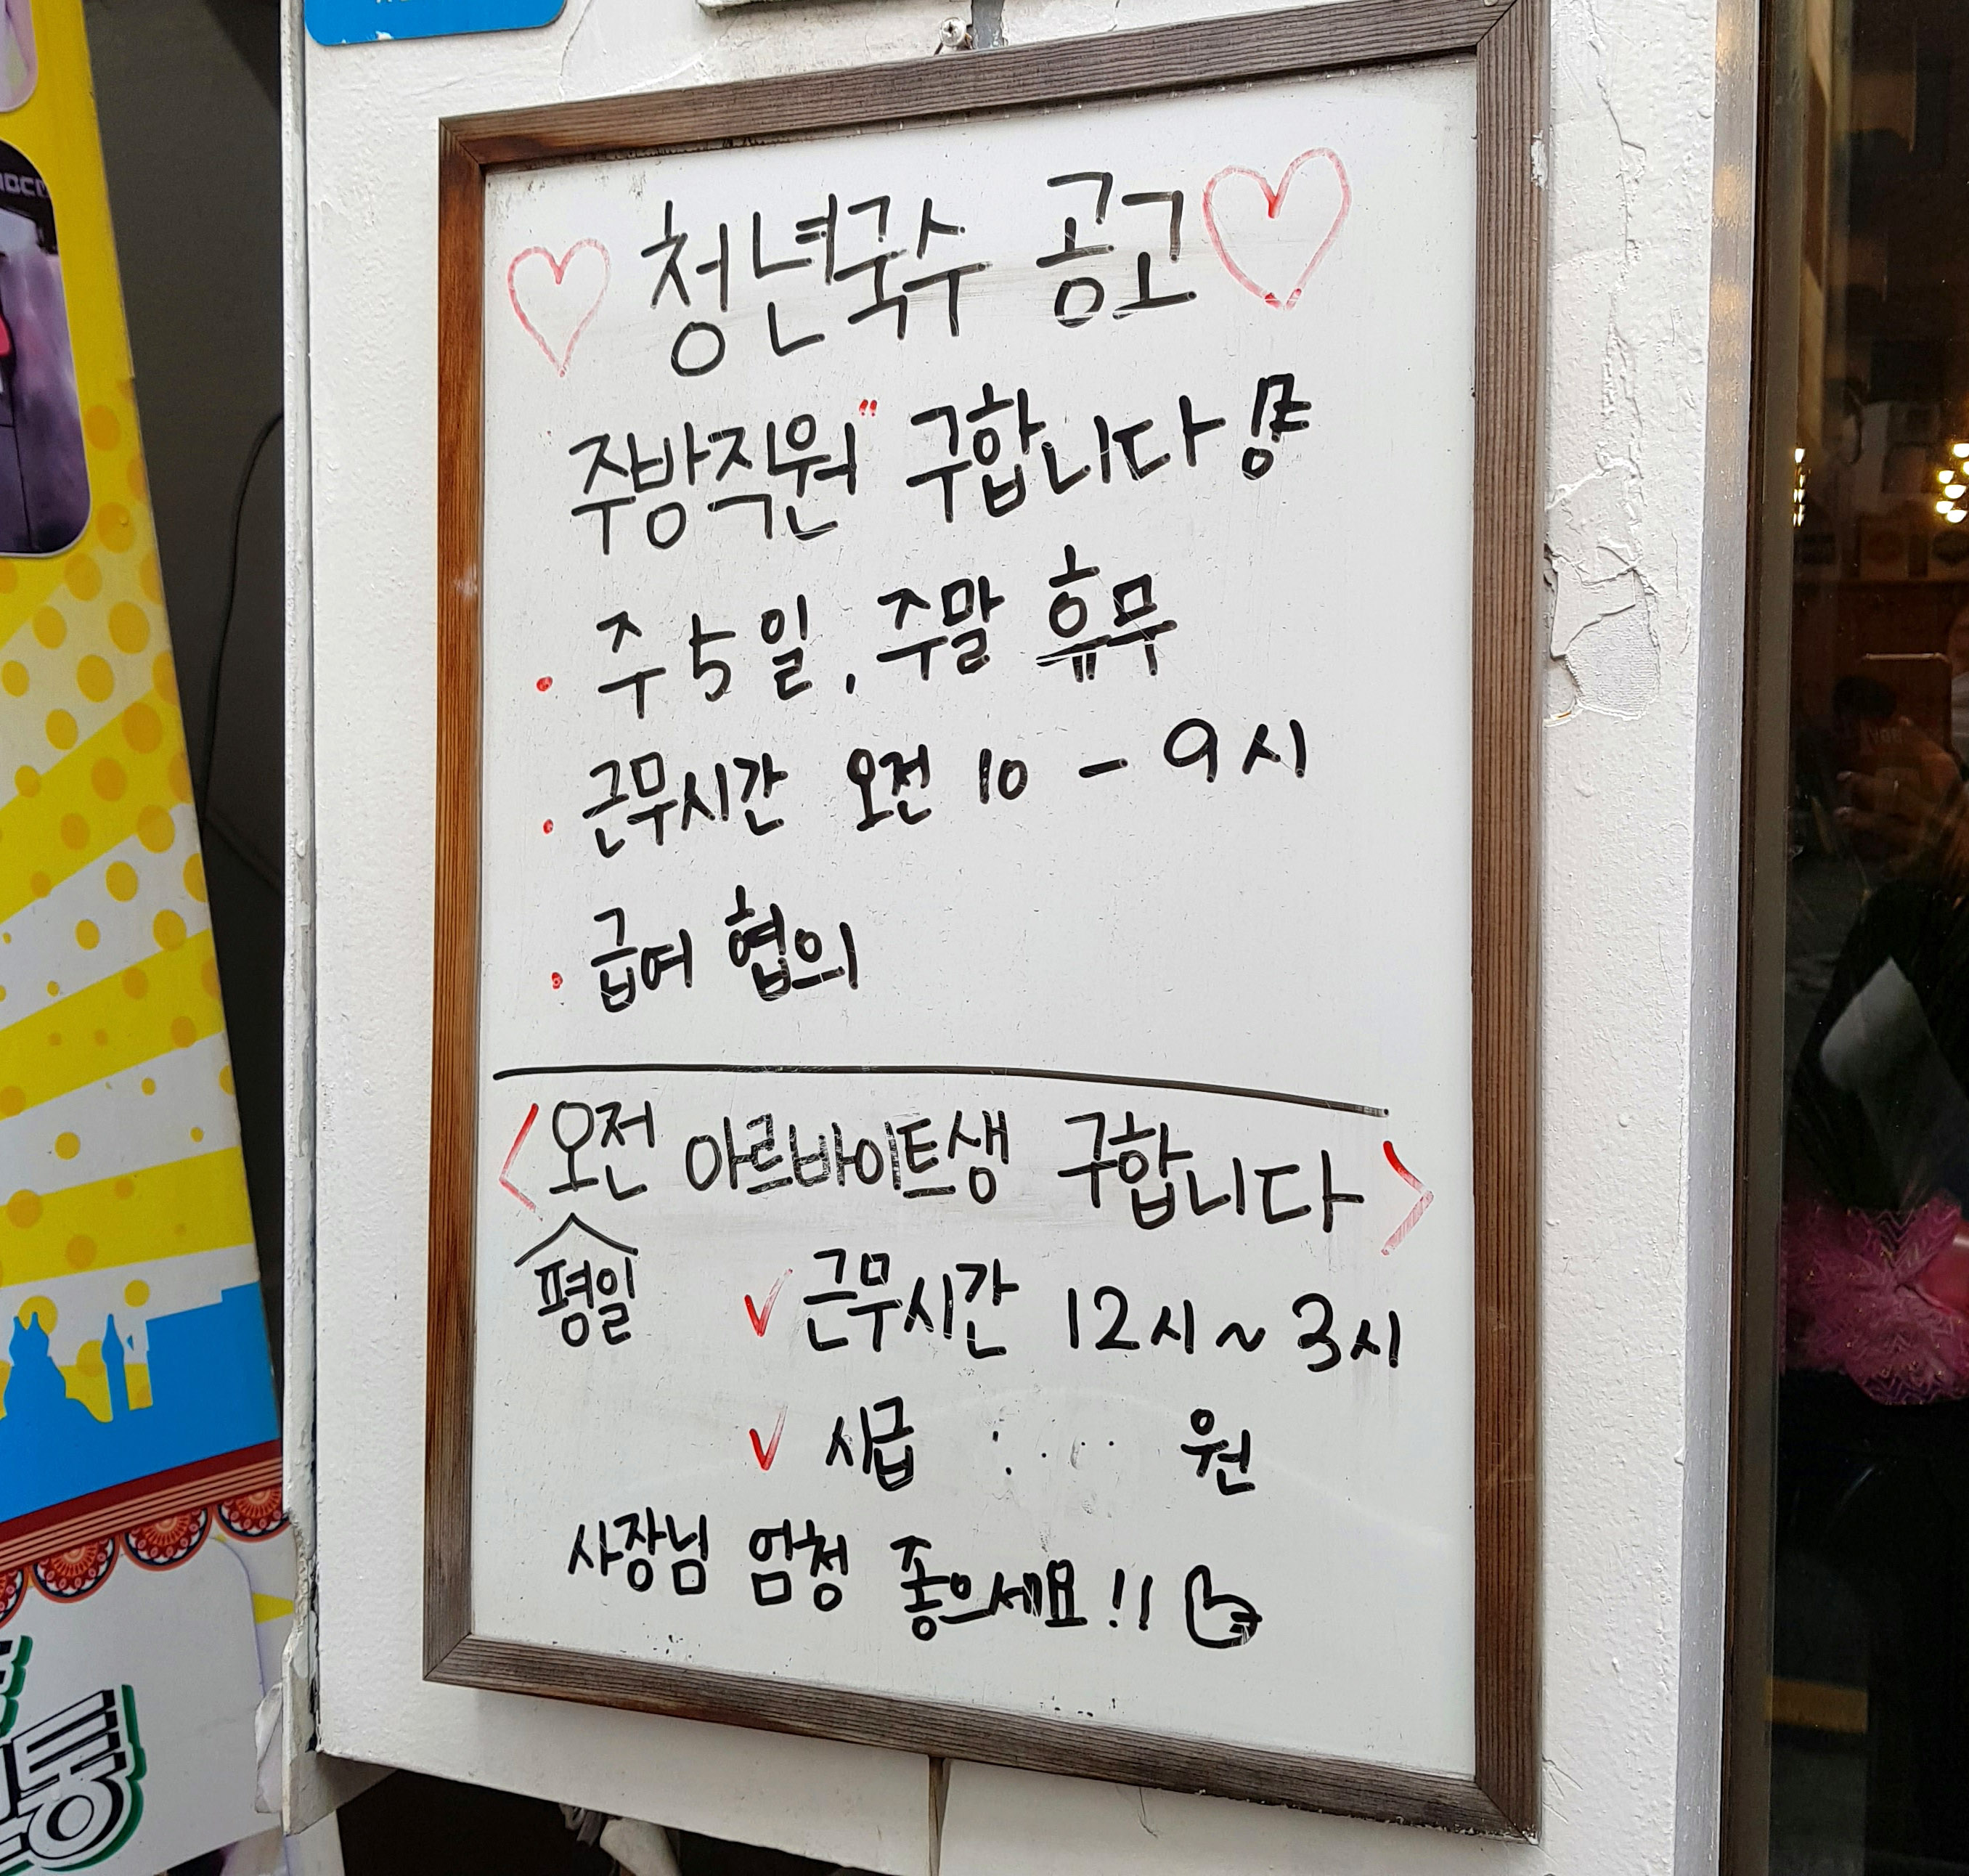 청년국수 공고
"주방직원" 구합니다
· 주 5일, 주말 휴무
· 근무시간 오전 10 - 9시
· 급여 협의
<오전 아르바이트생 구합니다>
평일
✓ 근무시간 12시 ~ 3시
✓ 시급 : 원
사장님 엄청 좋으세요!!